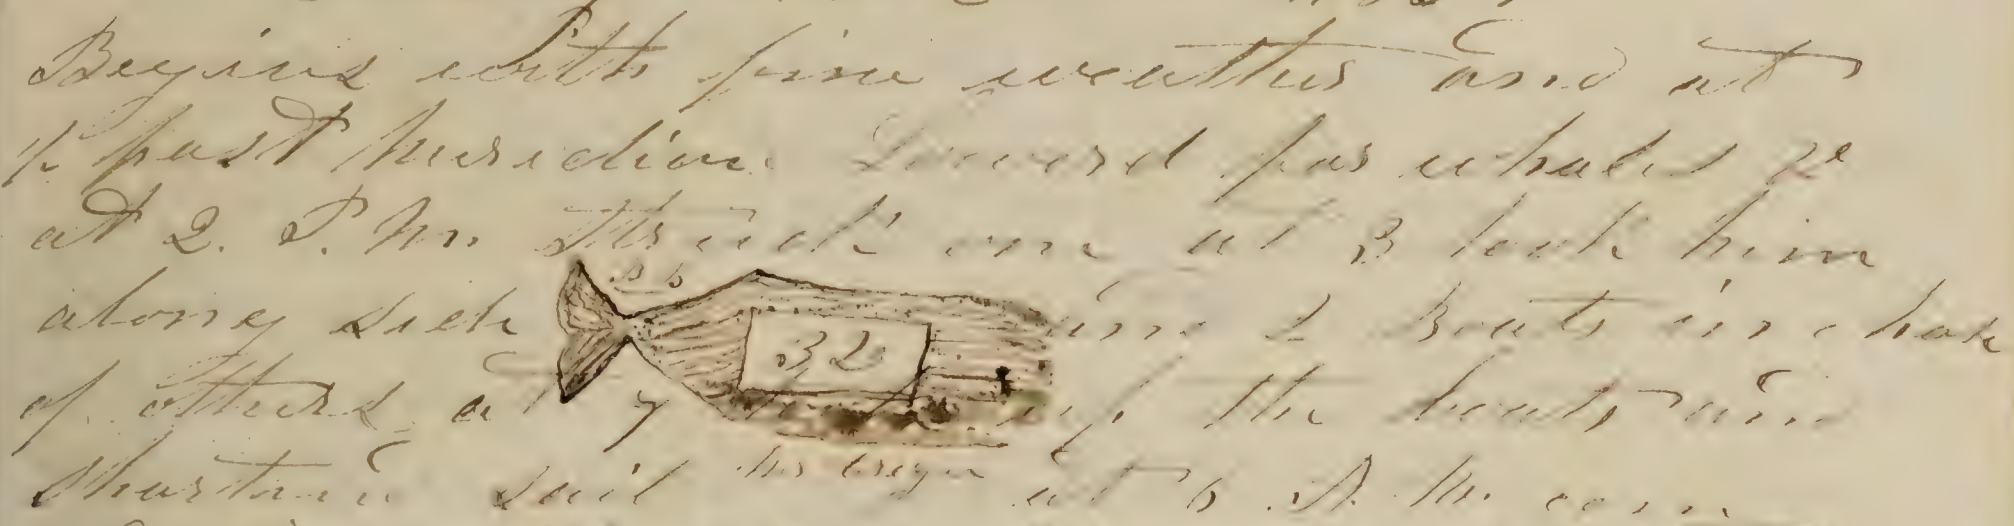 Begins with fine weather and at
1/2 past Meridian Lowered for whales
at 2. P. M. Struck one at 3 took him
along side and 2 Boats in chase
32
of others at 7 the boats and
Shortend Sail at 6 A. M.